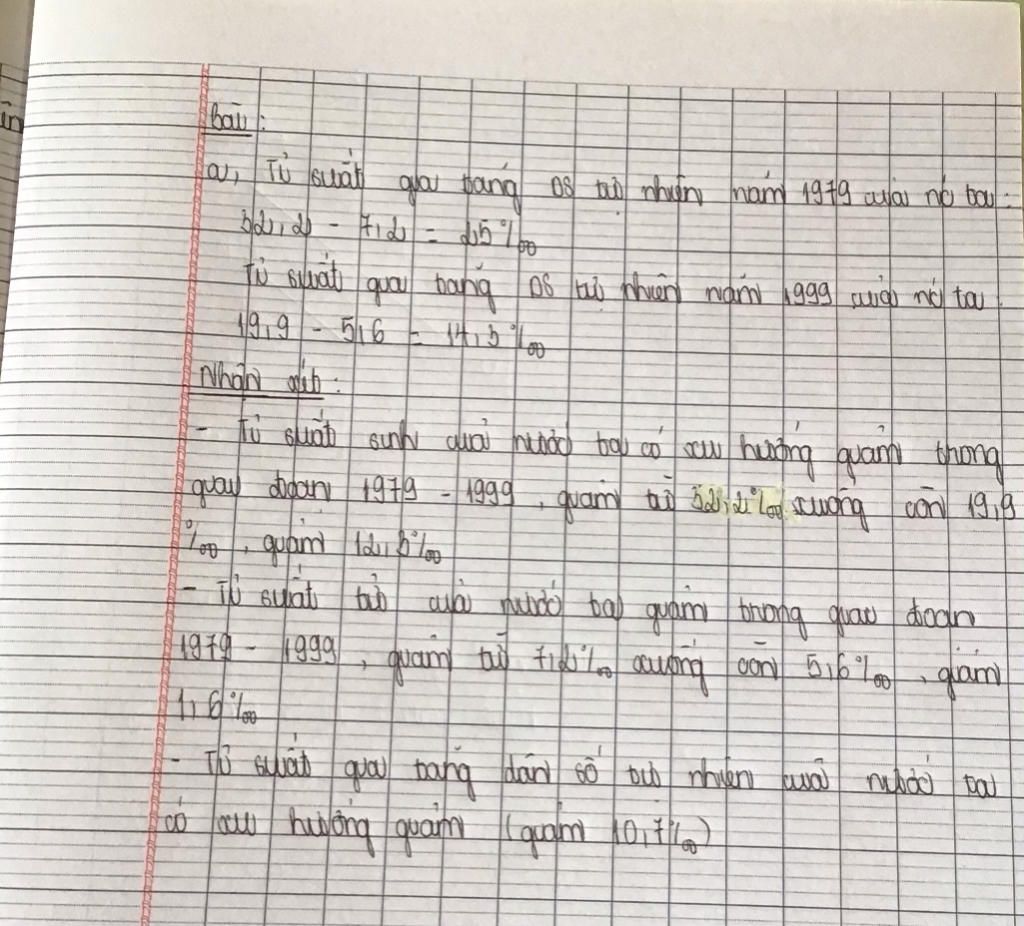 Bài:
a, Tỉ suất gia tăng DS tự nhiên năm 1979 của nc ta:
32,2 - 7,2 = 25‰
Tỉ suất gia tăng DS tự nhiên năm 1999 của nc ta
19,9 - 5,6 = 14,3‰
Nhận xét:
- Tỉ suất sinh của nước ta có xu hướng giảm trong
giai đoạn 1979 - 1999, giảm từ 32,2‰ xuống còn 19,9
‰, giảm 12,3‰
- Tỉ suất tử của nước ta giảm trong giai đoạn
1979 - 1999, giảm từ 7,2‰ xuống còn 5,6‰, giảm
1,6‰
- Tỉ suất gia tăng dân số tự nhiên của nước ta
có xu hướng giảm (giảm 10,7‰)